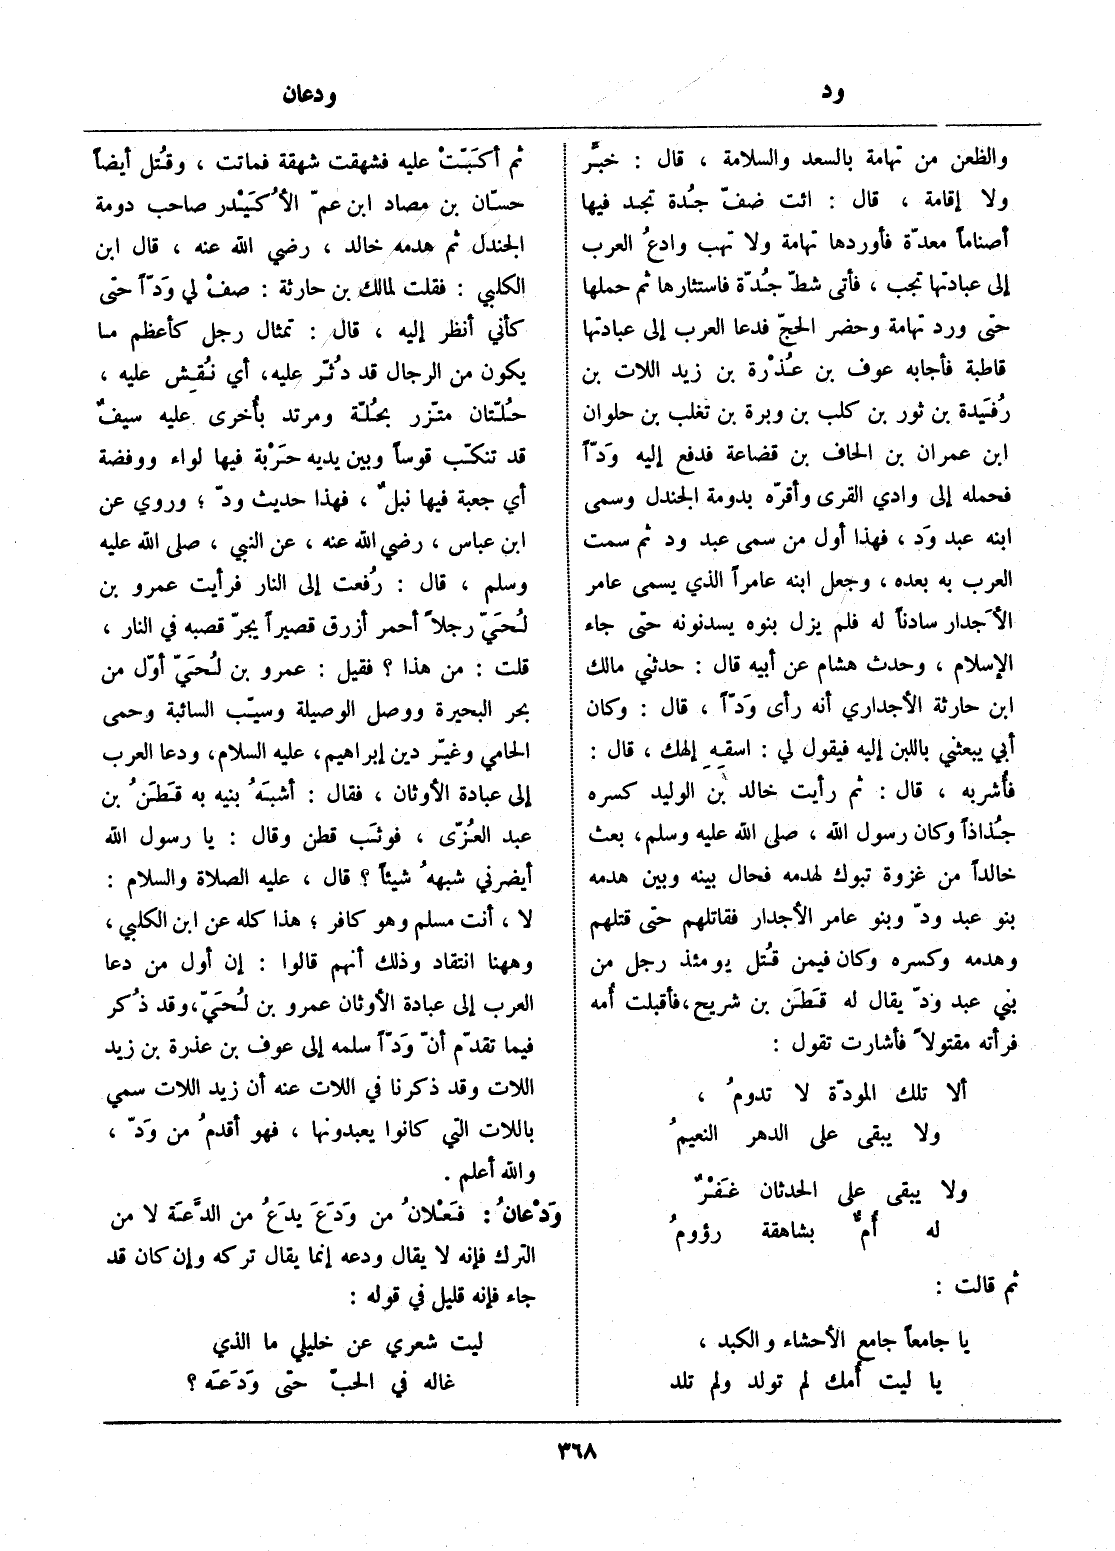 ود
ودعان
والظعن من تهامة بالسعد والسلامة ، قال : خبَّر
ولا إقامة ، قال : ائت ضفّ جُدة تجد فيها
أصناماً معدّة فأوردها تهامة ولا تهب وادعُ العرب
إلى عبادتها تجب ، فأتى شطّ جُدّة فاستثارها ثم حملها
حتى ورد تهامة وحضر الحجّ فدعا العرب إلى عبادتها
قاطبة فأجابه عوف بن عُذْرة بن زيد اللات بن
رُفَيدة بن ثور بن كلب بن وبرة بن تغلب بن حلوان
ابن عمران بن الحاف بن قضاعة فدفع إليه وَدّاً
فحمله إلى وادي القرى وأقرّه بدومة الجندل وسمى
ابنه عبد وَد ، فهذا أول من سمى عبد ود ثم سمت
العرب به بعده ، وجعل ابنه عامراً الذي يسمى عامر
الأجدار سادناً له فلم يزل بنوه يسدنونه حتى جاء
الإسلام ، وحدث هشام عن أبيه قال : حدثني مالك
ابن حارثة الأجداري أنه رأى وَدّاً ، قال : وكان
أبي يبعثني باللبن إليه فيقول لي : اسقِهِ إلهك ، قال :
فأشربه ، قال : ثم رأيت خالد بن الوليد كسره
جُذاذاً وكان رسول الله ، صلى الله عليه وسلم، بعث
خالداً من غزوة تبوك لهدمه فحال بينه وبين هدمه
بنو عبد ودّ وبنو عامر الأجدار فقاتلهم حتى قتلهم
وهدمه وكسره وكان فيمن قُتل يومئذ رجل من
بني عبد ودّ يقال له قَطَن بن شريح،فأقبلت أُمه
فرأته مقتولاً فأشارت تقول :
ألا تلك المودّة لا تدومُ ،
ولا يبقى على الدهر النعيمُ
ولا يبقى على الحدثان غَفْرٌ
له أُمٌّ بشاهقة رؤومُ
ثم قالت :
يا جامعاً جامع الأحشاء والكبد ،
يا ليت أُمك لم تولد ولم تلد
ثم أكبّتْ عليه فشهقت شهقة فماتت ، وقُتل أيضاً
حسّان بن مصاد ابن عمّ الأُكَيْدر صاحب دومة
الجندل ثم هدمه خالد ، رضي الله عنه ، قال ابن
الكلبي : فقلت لمالك بن حارثة : صفْ لي وَدّاً حتى
كأني أنظر إليه ، قال : تمثال رجل كأعظم ما
يكون من الرجال قد دُثّر عليه، أي نُقِش عليه ،
حُلّتان متّزر بحُلّة ومرتد بأُخرى عليه سيفٌ
قد تنكّب قوساً وبين يديه حَرْبة فيها لواء ووفضة
أي جعبة فيها نبلٌ ، فهذا حديث ودّ ؛ وروي عن
ابن عباس ، رضي الله عنه ، عن النبي ، صلى الله عليه
وسلم ، قال : رُفعت إلى النار فرأيت عمرو بن
لُحَيّ رجلاً أحمر أزرق قصيراً يجرّ قصبه في النار ،
قلت : من هذا ؟ فقيل : عمرو بن لُحَيّ أوّل من
بحر البحيرة ووصل الوصيلة وسيّب السائبة وحمى
الحامي وغيّر دين إبراهيم، عليه السلام، ودعا العرب
إلى عبادة الأوثان ، فقال : أشبَهُ بنيه به قَطَنُ بن
عبد العُزّى ، فوثَب قطن وقال : يا رسول الله
أيضرني شبههُ شيئاً ؟ قال ، عليه الصلاة والسلام :
لا ، أنت مسلم وهو كافر ؛ هذا كله عن ابن الكلبي ،
وههنا انتقاد وذلك أنهم قالوا : إن أول من دعا
العرب إلى عبادة الأوثان عمرو بن لُحَيّ،وقد ذُكر
فيما تقدّم أنّ وَدّاً سلمه إلى عوف بن عذرة بن زيد
اللات وقد ذكرنا في اللات عنه أن زيد اللات سمي
باللات التي كانوا يعبدونها ، فهو أقدمُ من وَدّ ،
والله أعلم .
وَدْعانُ : فَعْلانُ من وَدَعَ يدَعُ من الدَّعَة لا من
الترك فإنه لا يقال ودعه إنما يقال تركه وإن كان قد
جاء فإنه قليل في قوله :
ليت شعري عن خليلي ما الذي
غاله في الحبّ حتى وَدَعَه ؟
٣٦٨